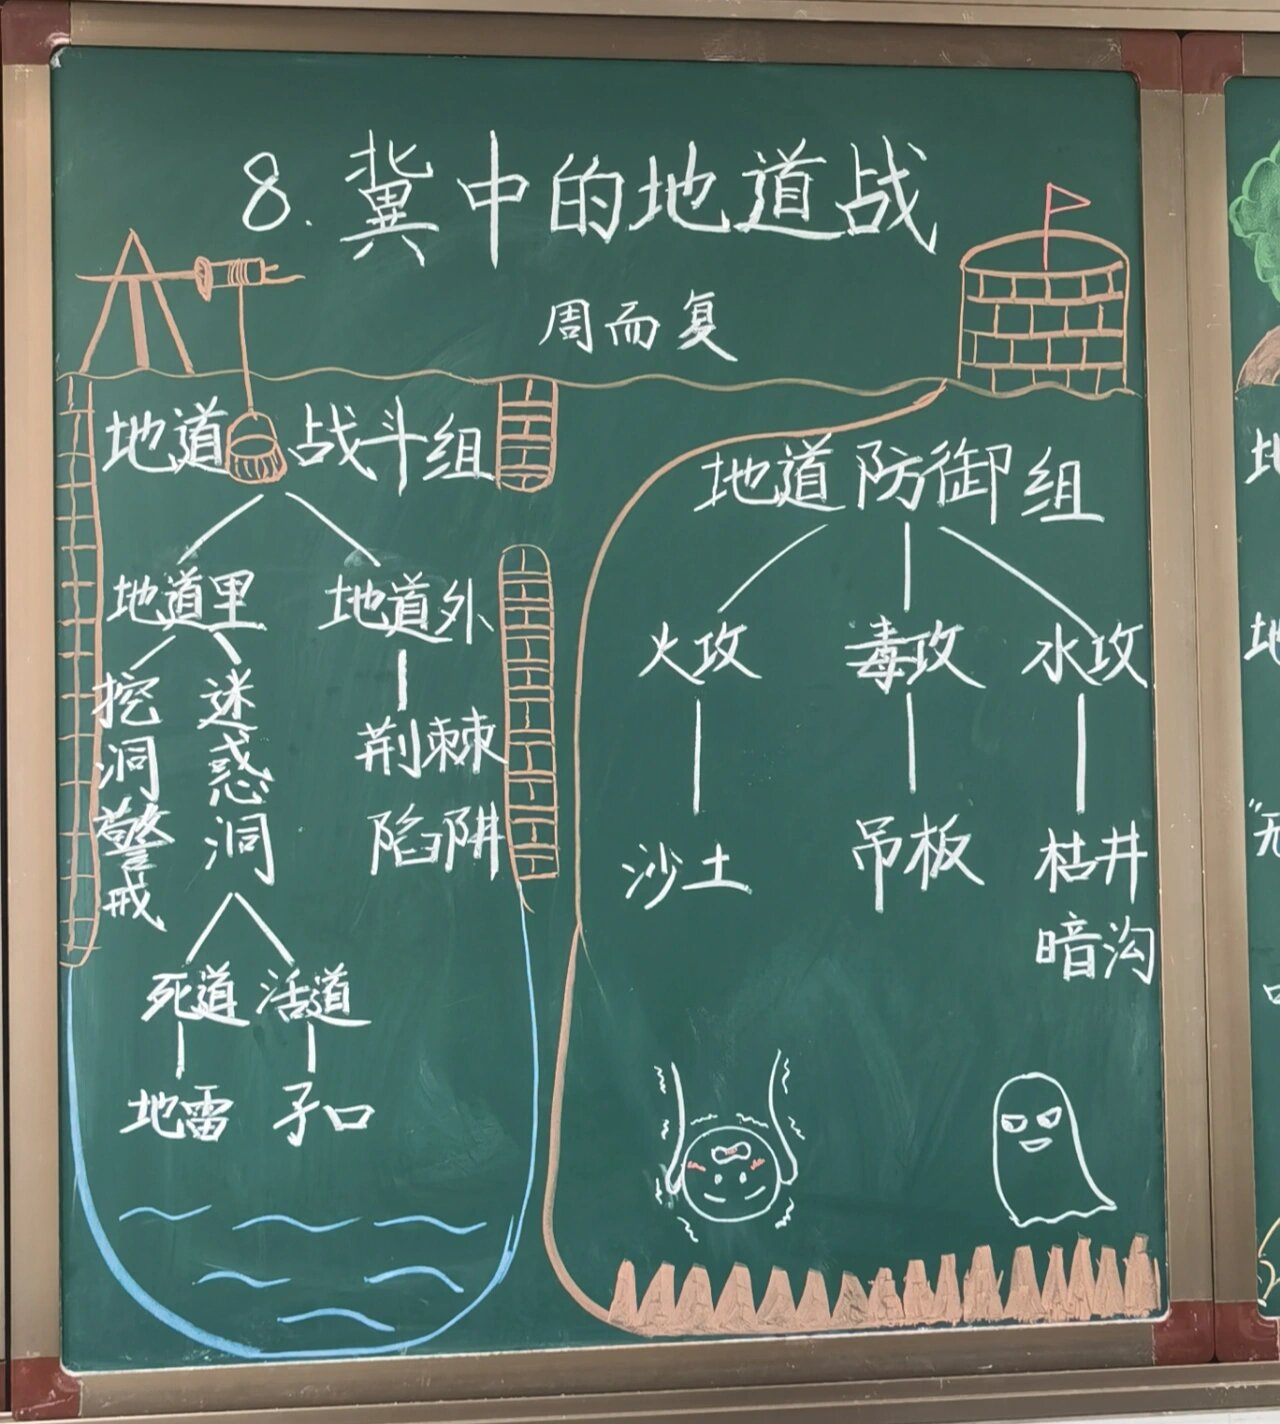 8.冀中的地道战
周而复
地道战斗组
地道里 地道外
挖洞警戒
迷惑洞
荆棘
陷阱
死道 活道
地雷 孑口
地道防御组
火攻 毒攻 水攻
沙土 吊板 枯井
暗沟